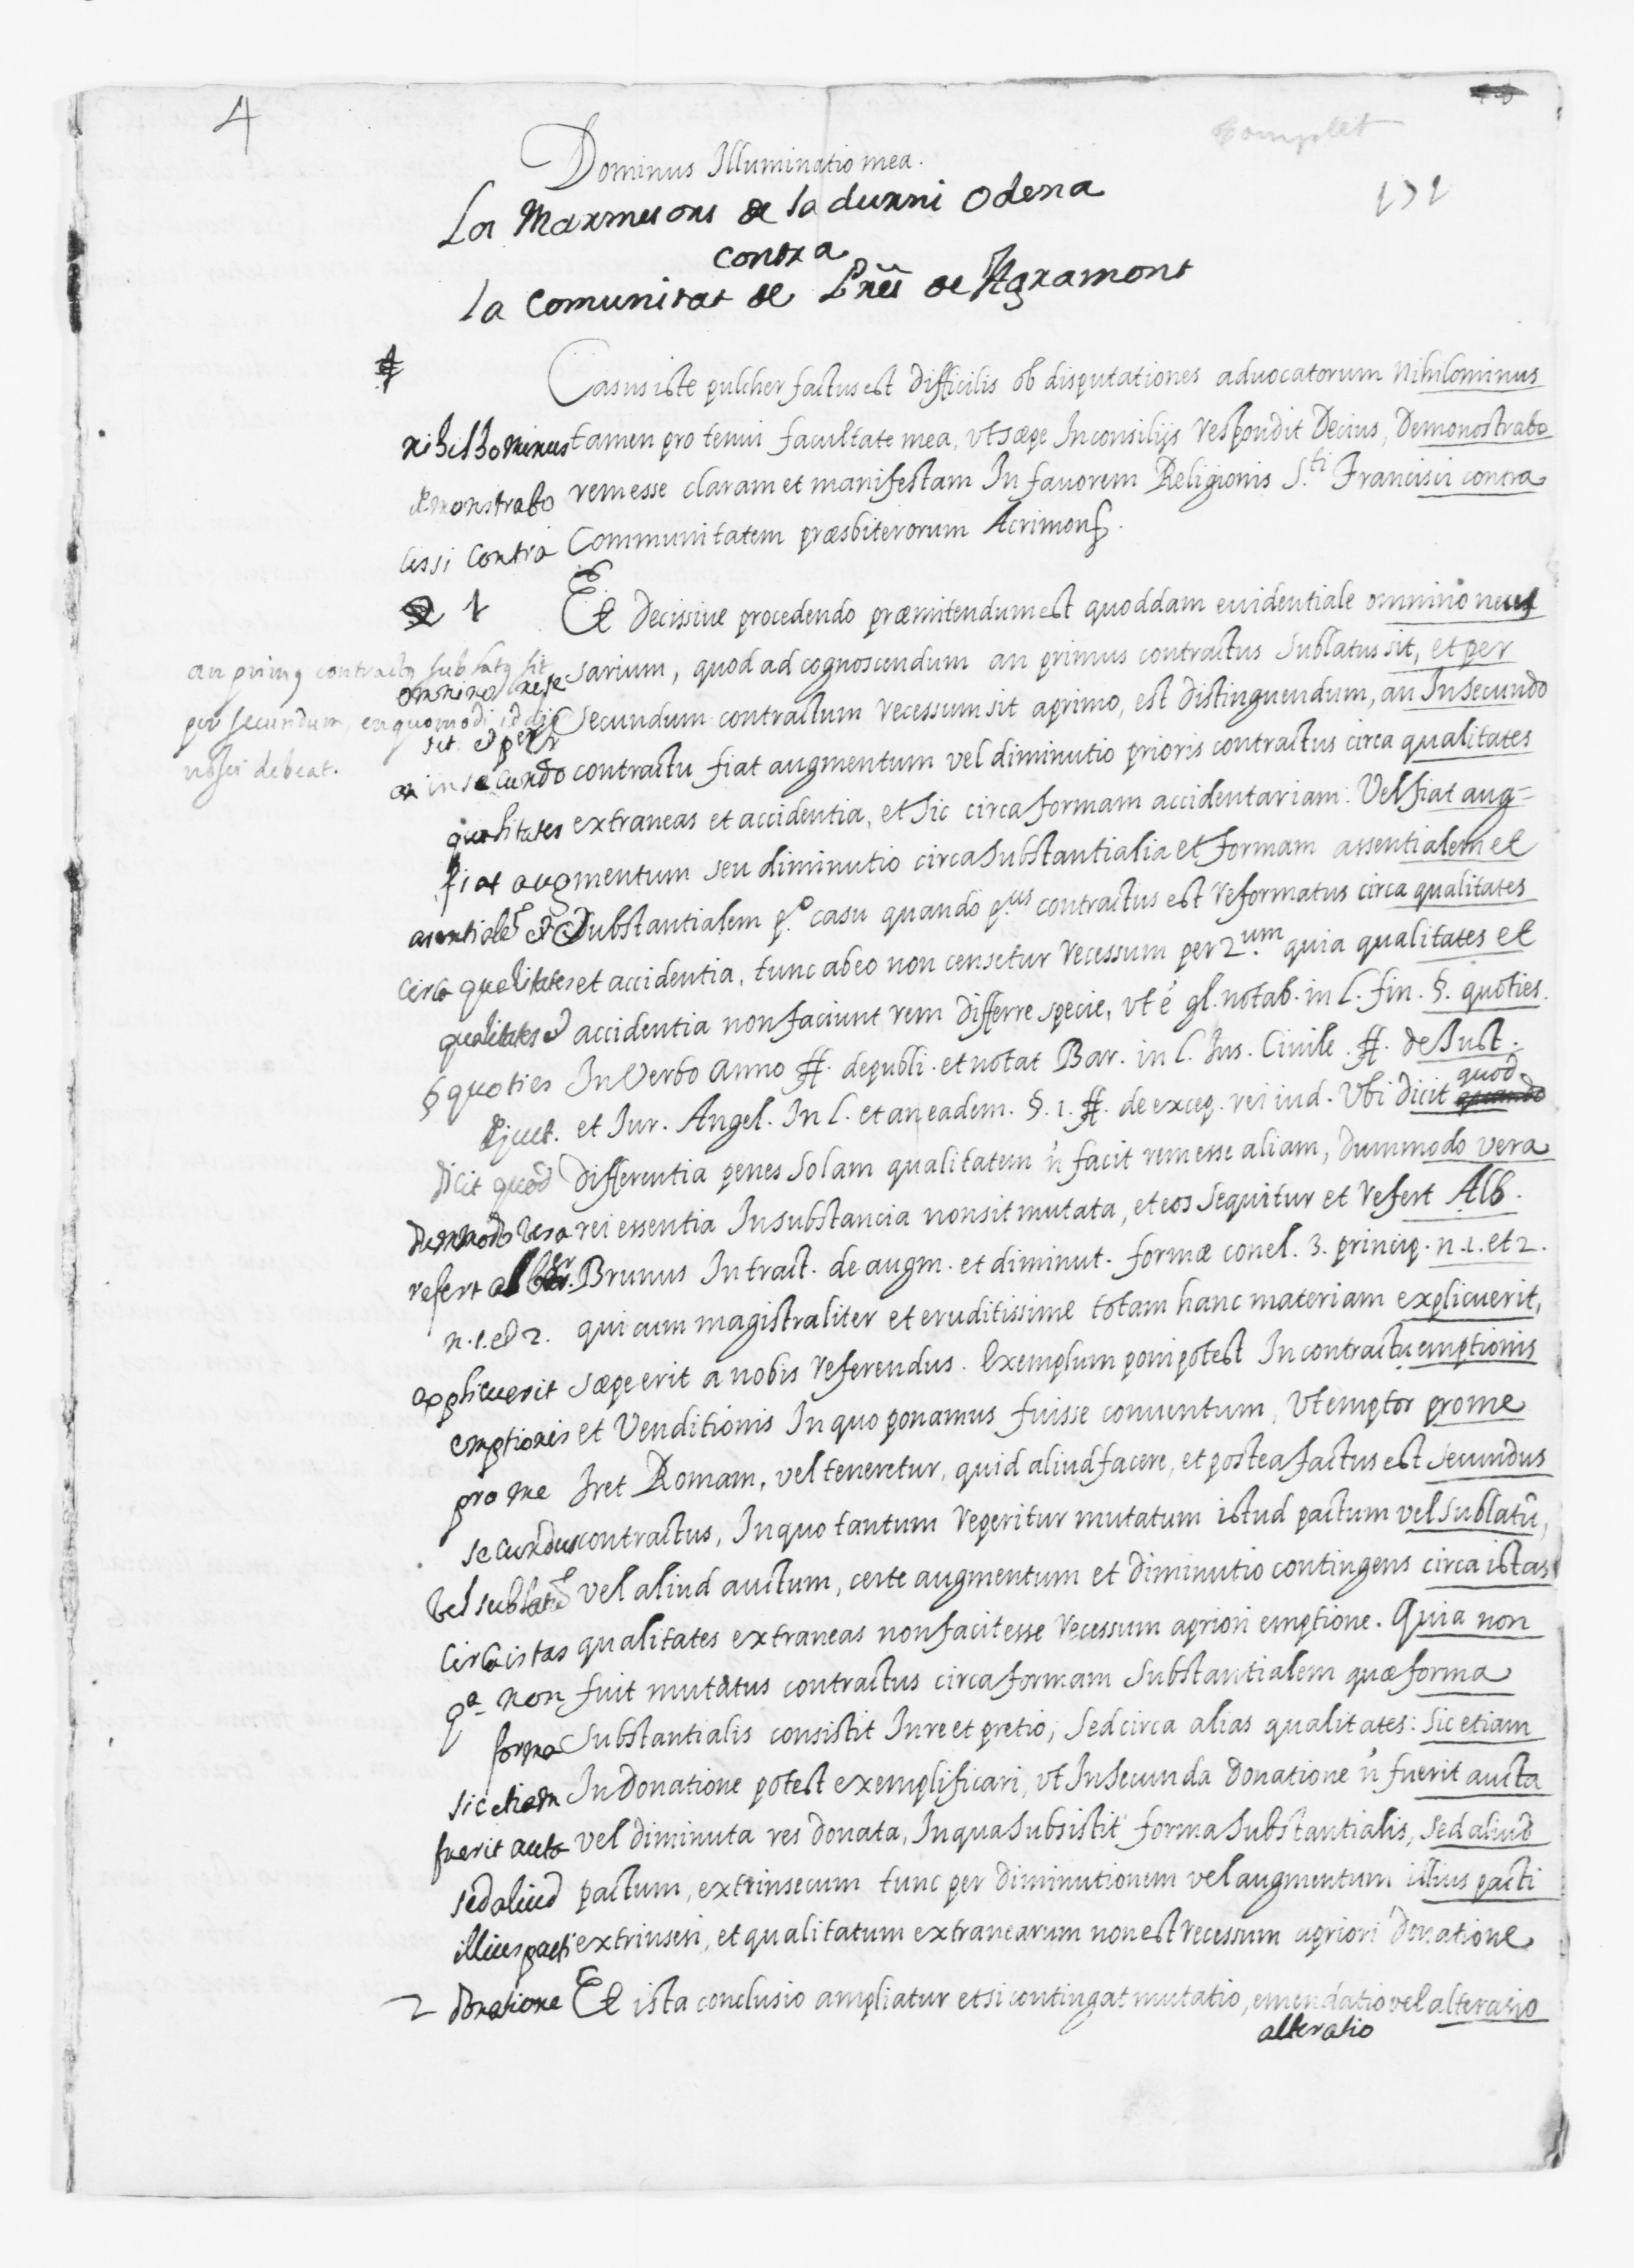 4
Complet
Dominus Illuminatio mea.
Los Marmesors de la
Odena
contra
la Comunitat de Pres de Agramont
Casus iste pulcher factus est difficilis ob disputationes aduocatorum Nihilominus
nihilhominus tamen pro tenui facultate mea, vt sæpe In consilijs respondit Decius, Demonostrabo
demonstrabo rem esse claram et manifestam In fauorem Religionis S.ti Francisci contra
cissi contra Communitatem præsbiterorum Acrimons.
1 Et Decissiue procedendo præmitendum est quoddam euidentiale omnino neces
an primus contractus sublatus sit
per secundum, en quomodi id dig
nosci debeat.
omnino nese sarium, quod ad cognoscendum an primus contractus sublatus sit, et per
sit et per Secundum contractum recessum sit a primo, est distinguendum, an In Secundo
an in secundo contractu fiat augmentum vel diminutio prioris contractus circa qualitates
qualitates extraneas et accidentia, et sic circa formam accidentariam: Vel fiat aug=
fiat augmentum seu diminutio circa substantialia et formam assentialem et
asentiale et Substantialem p.o casu quando p.us contractus est reformatus circa qualitates
circa qualitates et accidentia, tunc ab eo non censetur recessum per 2.um quia qualitates et
qualitates et accidentia non faciunt rem differre specie, vt é gl. notab. in l. fin. §. quoties.
§ quoties In Verbo anno ff. de publi. et notat Bar. in l. Jus. Ciuile. ff. de Just.
et Jur. Angel. In l. et an eadem. §. 1. ff. de excep. rei iud. Vbi dicit quod
dicit quod differentia penes solam qualitatem n facit rem esse aliam, dummodo vera
dummodo vera rei essentia In substancia non sit mutata, et eos sequitur et refert Alb.
refert alber. Brunus In tract. de augm. et diminut. formæ concl. 3. princip. n. 1. et 2.
n. 1. et 2. qui cum magistraliter et eruditissime totam hanc materiam explicuerit,
explicuerit sæpe erit a nobis referendus. Exemplum poni potest In contractu emptionis
emptionis et Venditionis In quo ponamus fuisse conuentum, Vt emptor pro me
pro me Iret Romam, vel teneretur, quid aliud facere, et postea factus est secundus
secundus contractus, In quo tantum reperitur mutatum istud pactum vel sublatũ,
vel sublatũ vel aliud auctum, certe augmentum et diminutio contingens circa istas
circa istas qualitates extraneas non facit esse recessum a priori emptione. Quia non
qa non fuit mutatus contractus circa formam substantialem quæ forma
forma Substantialis consistit In re et pretio, sed circa alias qualitates: Sic etiam
sic etiam In Donatione potest exemplificari, vt In Secunda donatione n fuerit aucta
fuerit aucta vel diminuta res donata, In qua subsistit forma substantialis, sed aliud
sed aliud pactum, extrinsecum tunc per diminutionem vel augmentum illius pacti
illius pacti extrinseci, et qualitatum extranearum non est recessum a priori donatione
2 donatione Et ista conclusio ampliatur etsi contingat mutatio, emendatio vel alteratio
alteratio